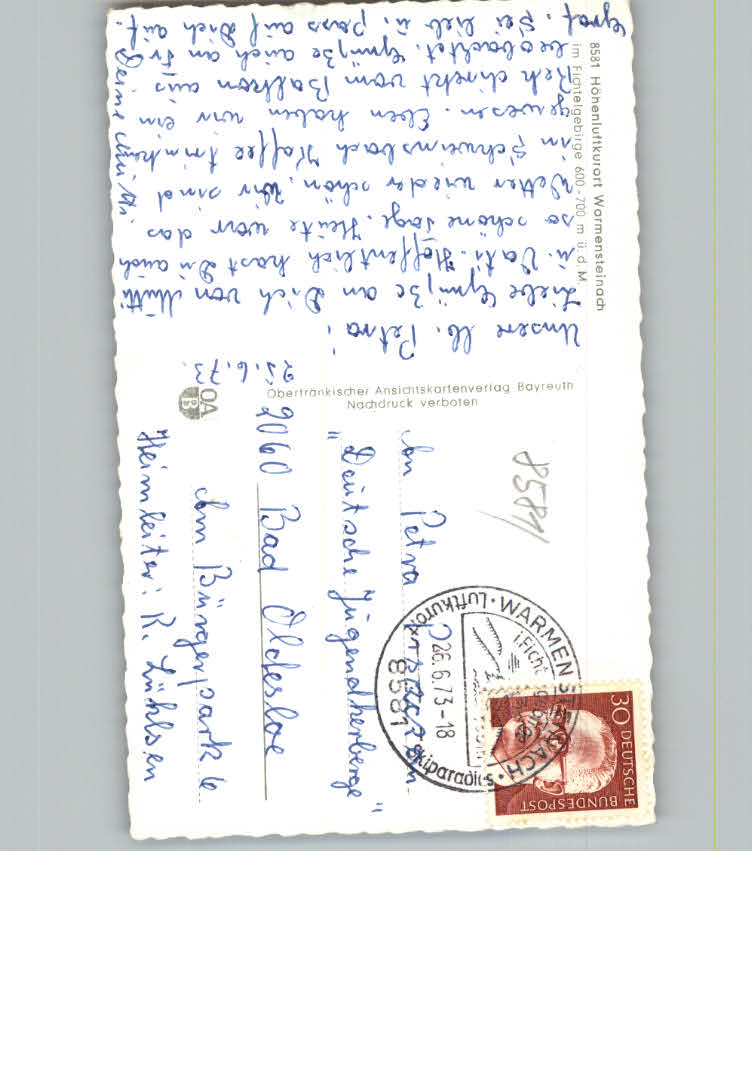 8581 Höhenluftkurort Warmensteinach
im Fichtelgebirge 600-700 m ü. d. M.
25.6.73.
Unsere lb. Petra!
Liebe Grüße an Dich von Mutti
u. Vati. Hoffentlich hast Du auch
so schöne Tage. Heute war das
Wetter wieder schön. Wir sind
in Schweinsbach Kaffee trinken
gewesen. Eben haben wir ein
Reh direkt vom Balkon aus
beobachtet. Grüße auch an Fr.
Graf. Sei lieb u. pass auf Dich auf.
Deine Mutti
Oberfränkischer Ansichtskartenverlag Bayreuth
Nachdruck verboten
OA
B
8581
An Petra
"Deutsche Jugendherberge"
2060 Bad Oldesloe
Am Bürgerpark 6
Heimleiter: R. Lühlsen
WARMENSTEINACH · Luftkurort
i. Fichtelgebirge
26.6.73-18
8581
Skiparadies
30 DEUTSCHE
BUNDESPOST